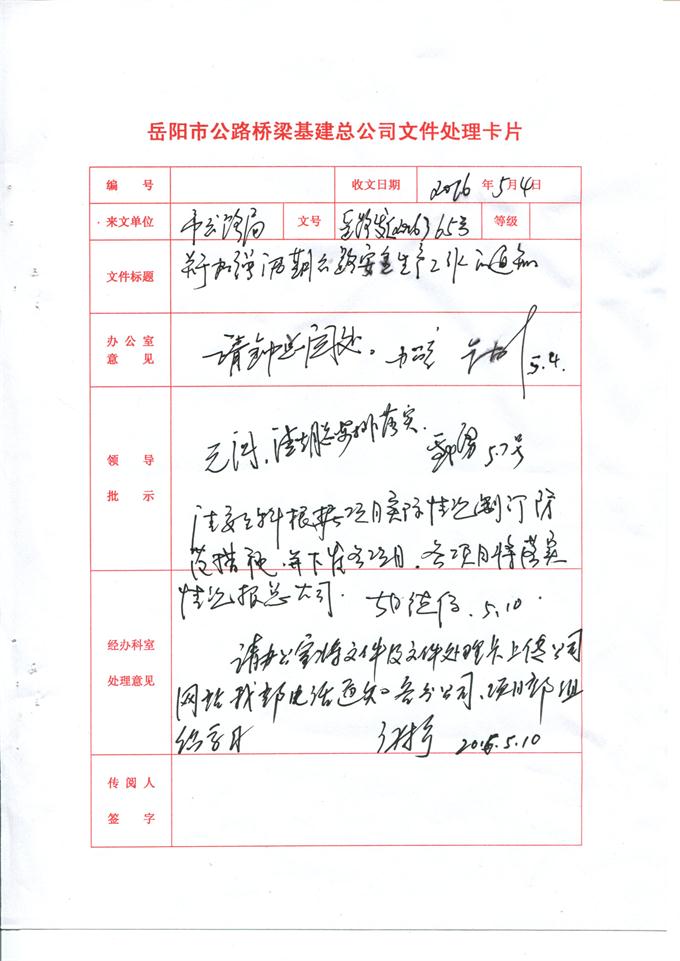 岳阳市公路桥梁基建总公司文件处理卡片
编 号 收文日期 2016 年 5 月 4 日
来文单位 市公路局 文号 岳路发[2016]65号 等级
文件标题 关于加强汛期公路安全生产工作的通知
办公室
意 见 请钟总阅处。 5.4.
领 导
批 示
已阅,请胡总安排落实. 5.7号
请安全科根据项目实际情况制订防
范措施,并下发各项目,各项目将落实
情况报总公司. 5.10.
经办科室
处理意见
请办公室将文件及文件处理卡上传公司
网站 我部电话通知各分公司、项目部组
织学习 2016.5.10
传 阅 人
签 字